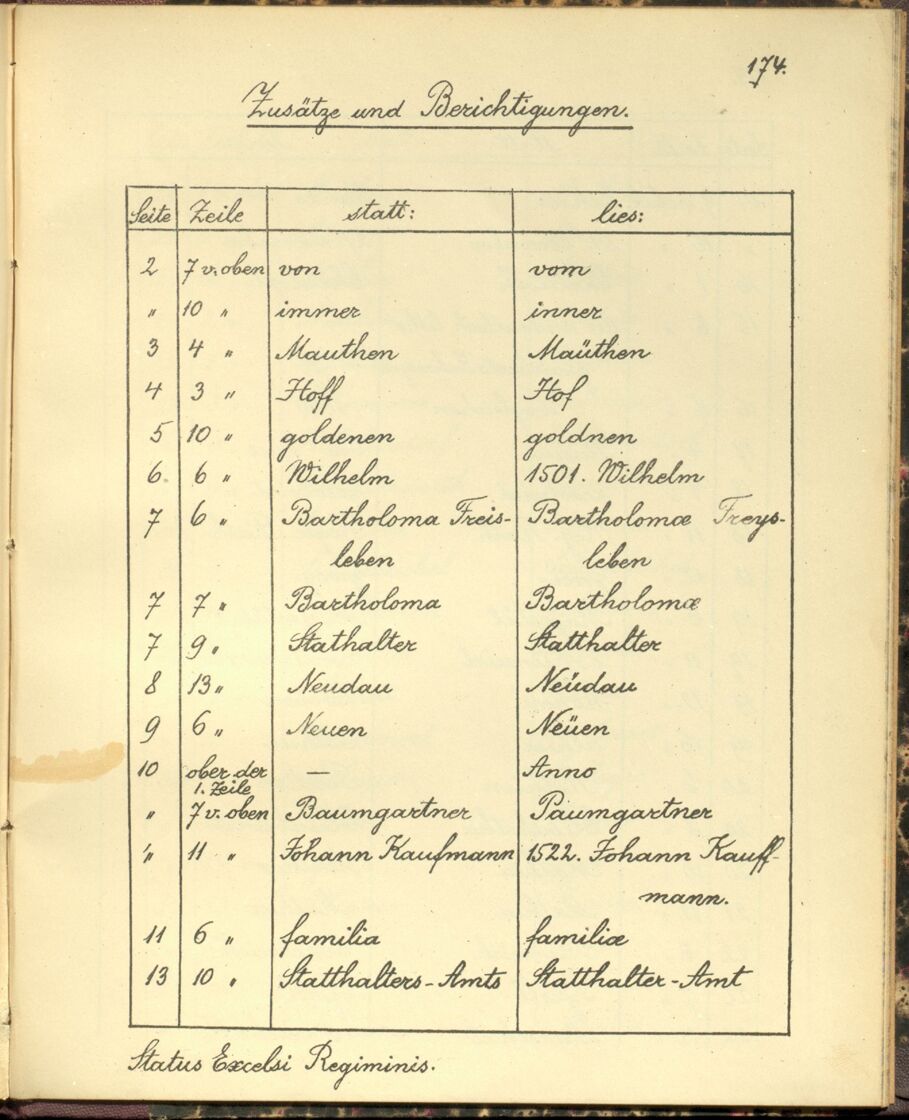 174.
Zusätze und Berichtigungen.
Seite Zeile statt: lies:
2 7 v. oben von vom
" 10 " immer inner
3 4 " Mauthen Maüthen
4 3 " Hoff Hof
5 10 " goldenen goldnen
6. 6 " Wilhelm 1501. Wilhelm
7 6 " Bartholoma Freis- Bartholomæ Freys-
leben leben
7 7 " Bartholoma Bartholomæ
7 9 " Stathalter Statthalter
8 13 " Neudau Neüdau
9 6 " Neuen Neüen
10 ober der — Anno
1. Zeile
" 7 v. oben Baumgartner Paumgartner
" 11 " Johann Kaufmann 1522. Johann Kauff-
mann.
11 6 " familia familiæ
13 10 " Statthalters-Amts Statthalter-Amt
Status Excelsi Regiminis.